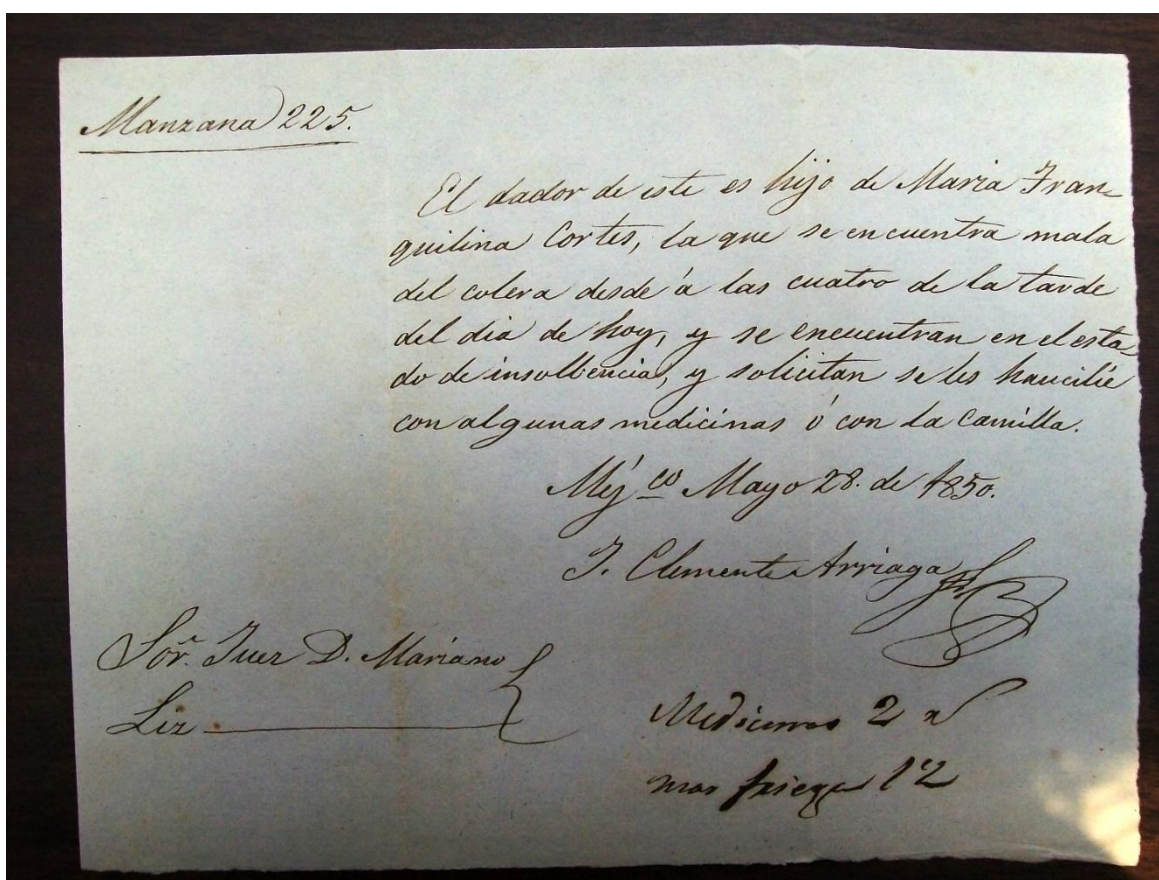 Manzana 225.
El dador de este es hijo de Maria Fran
quilina Cortes, la que se encuentra mala
del colera desde á las cuatro de la tarde
del dia de hoy, y se encuentran en el esta-
do de insolbencia, y solicitan se les haucilie
con algunas medicinas ó con la Camilla.
Mej.co Mayo 28. de 1850.
J. Clemente Arriaga
Sor. Juez D. Mariano
Liz
Medicinas 2 r
mas friega 12